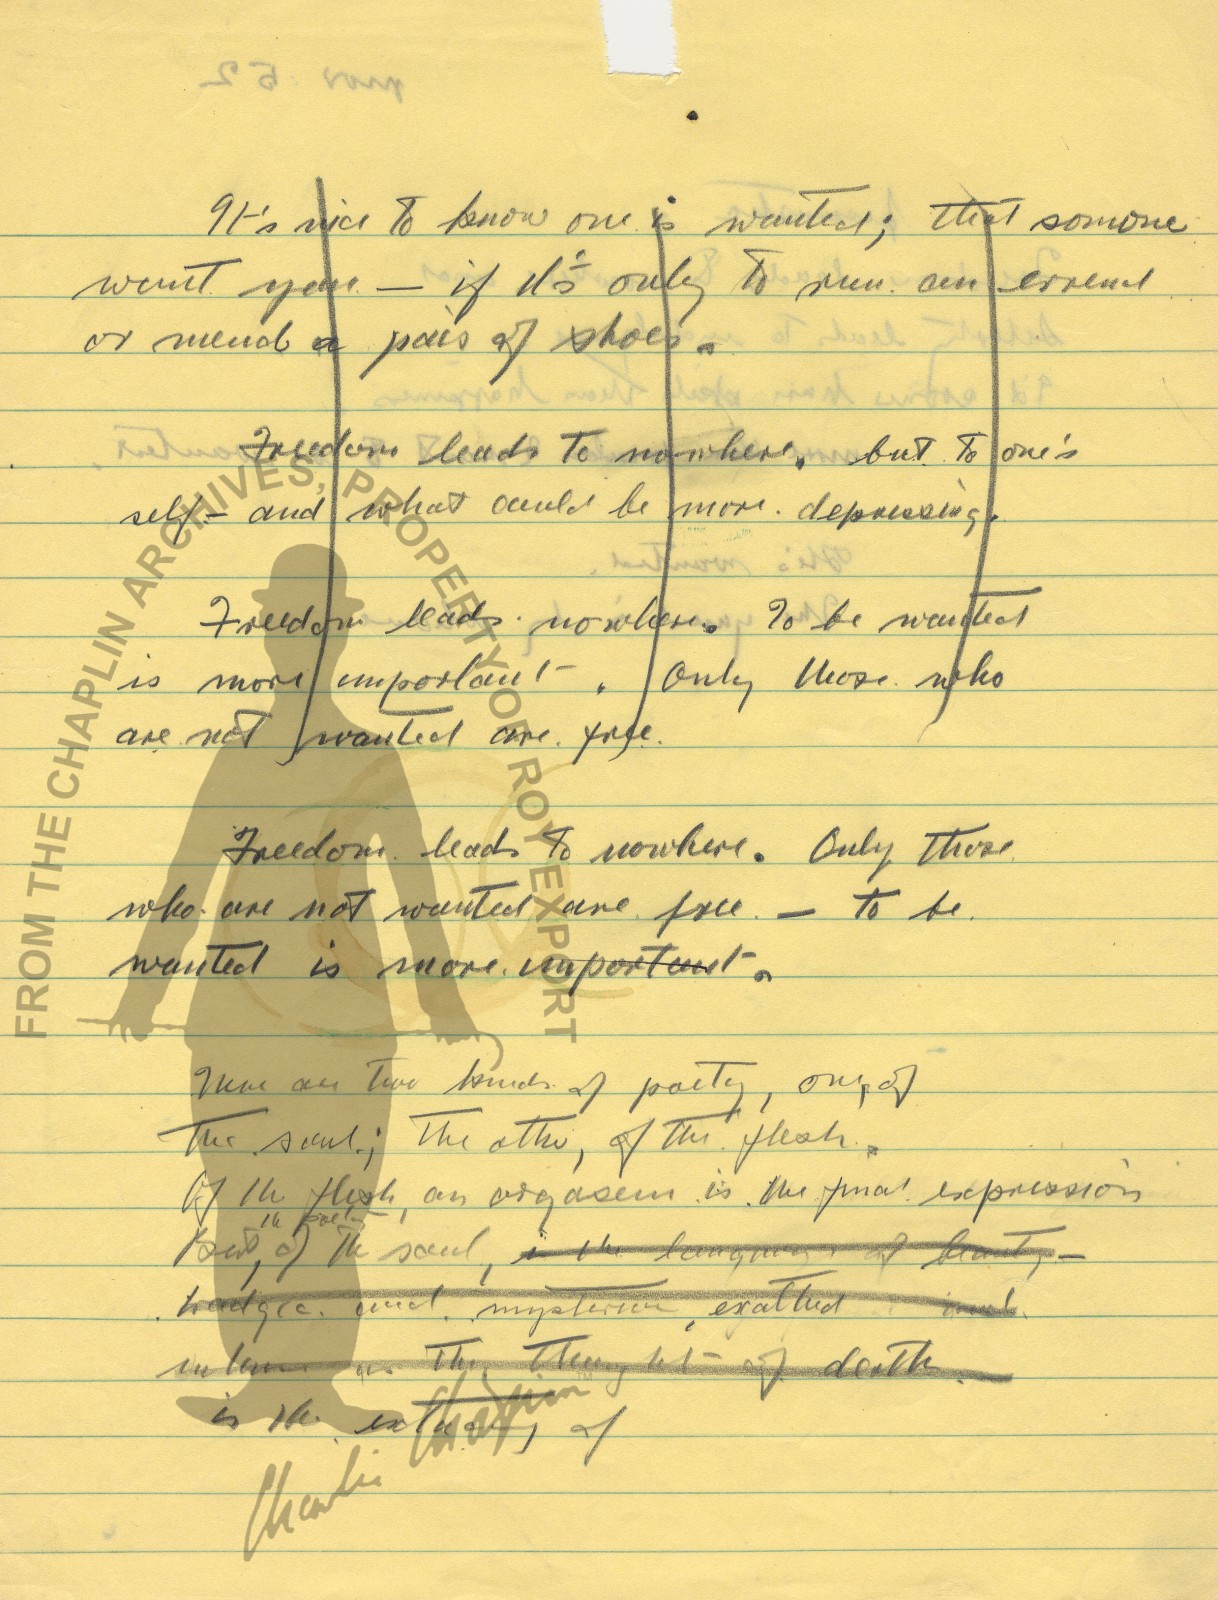 It's nice to know one is wanted; that somone
want you — if it's only to run an errend
or mend a pair of shoes.
Freedom leads to nowhere. but to one's
self — and what could be more depressing.
Freedom leads nowhere. To be wanted
is more important. Only those who
are not wanted are free.
Freedom leads to nowhere. Only those
who are not wanted are free — to be
wanted is more important.
There are two kinds of poetry, one, of
the soul; the other, of the flesh.
Of the flesh, an orgasem is the final expression
the poetry
But, of the soul, is the language of beauty —
and mysterious, exalted
as the thought of death.
is the of
FROM THE CHAPLIN ARCHIVES, PROPERTY OF ROY EXPORT
Charlie Chaplin™
nov 52